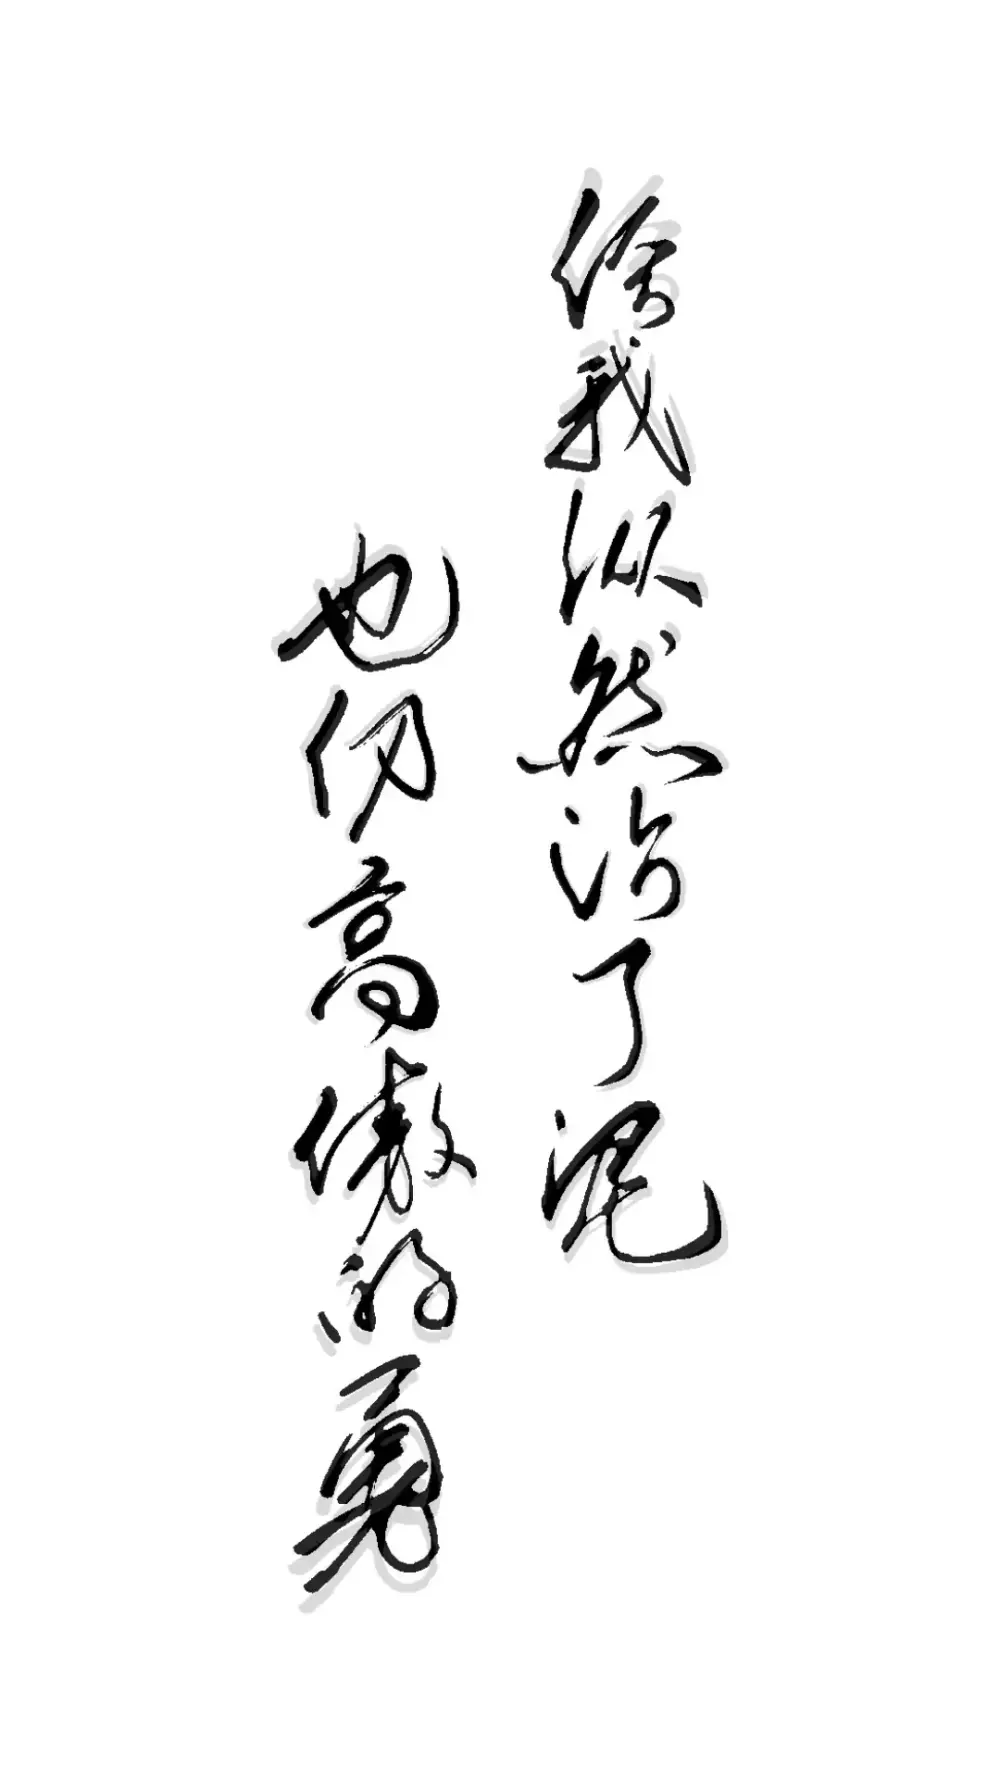 我纵然沾了泥
也仍高傲的勇